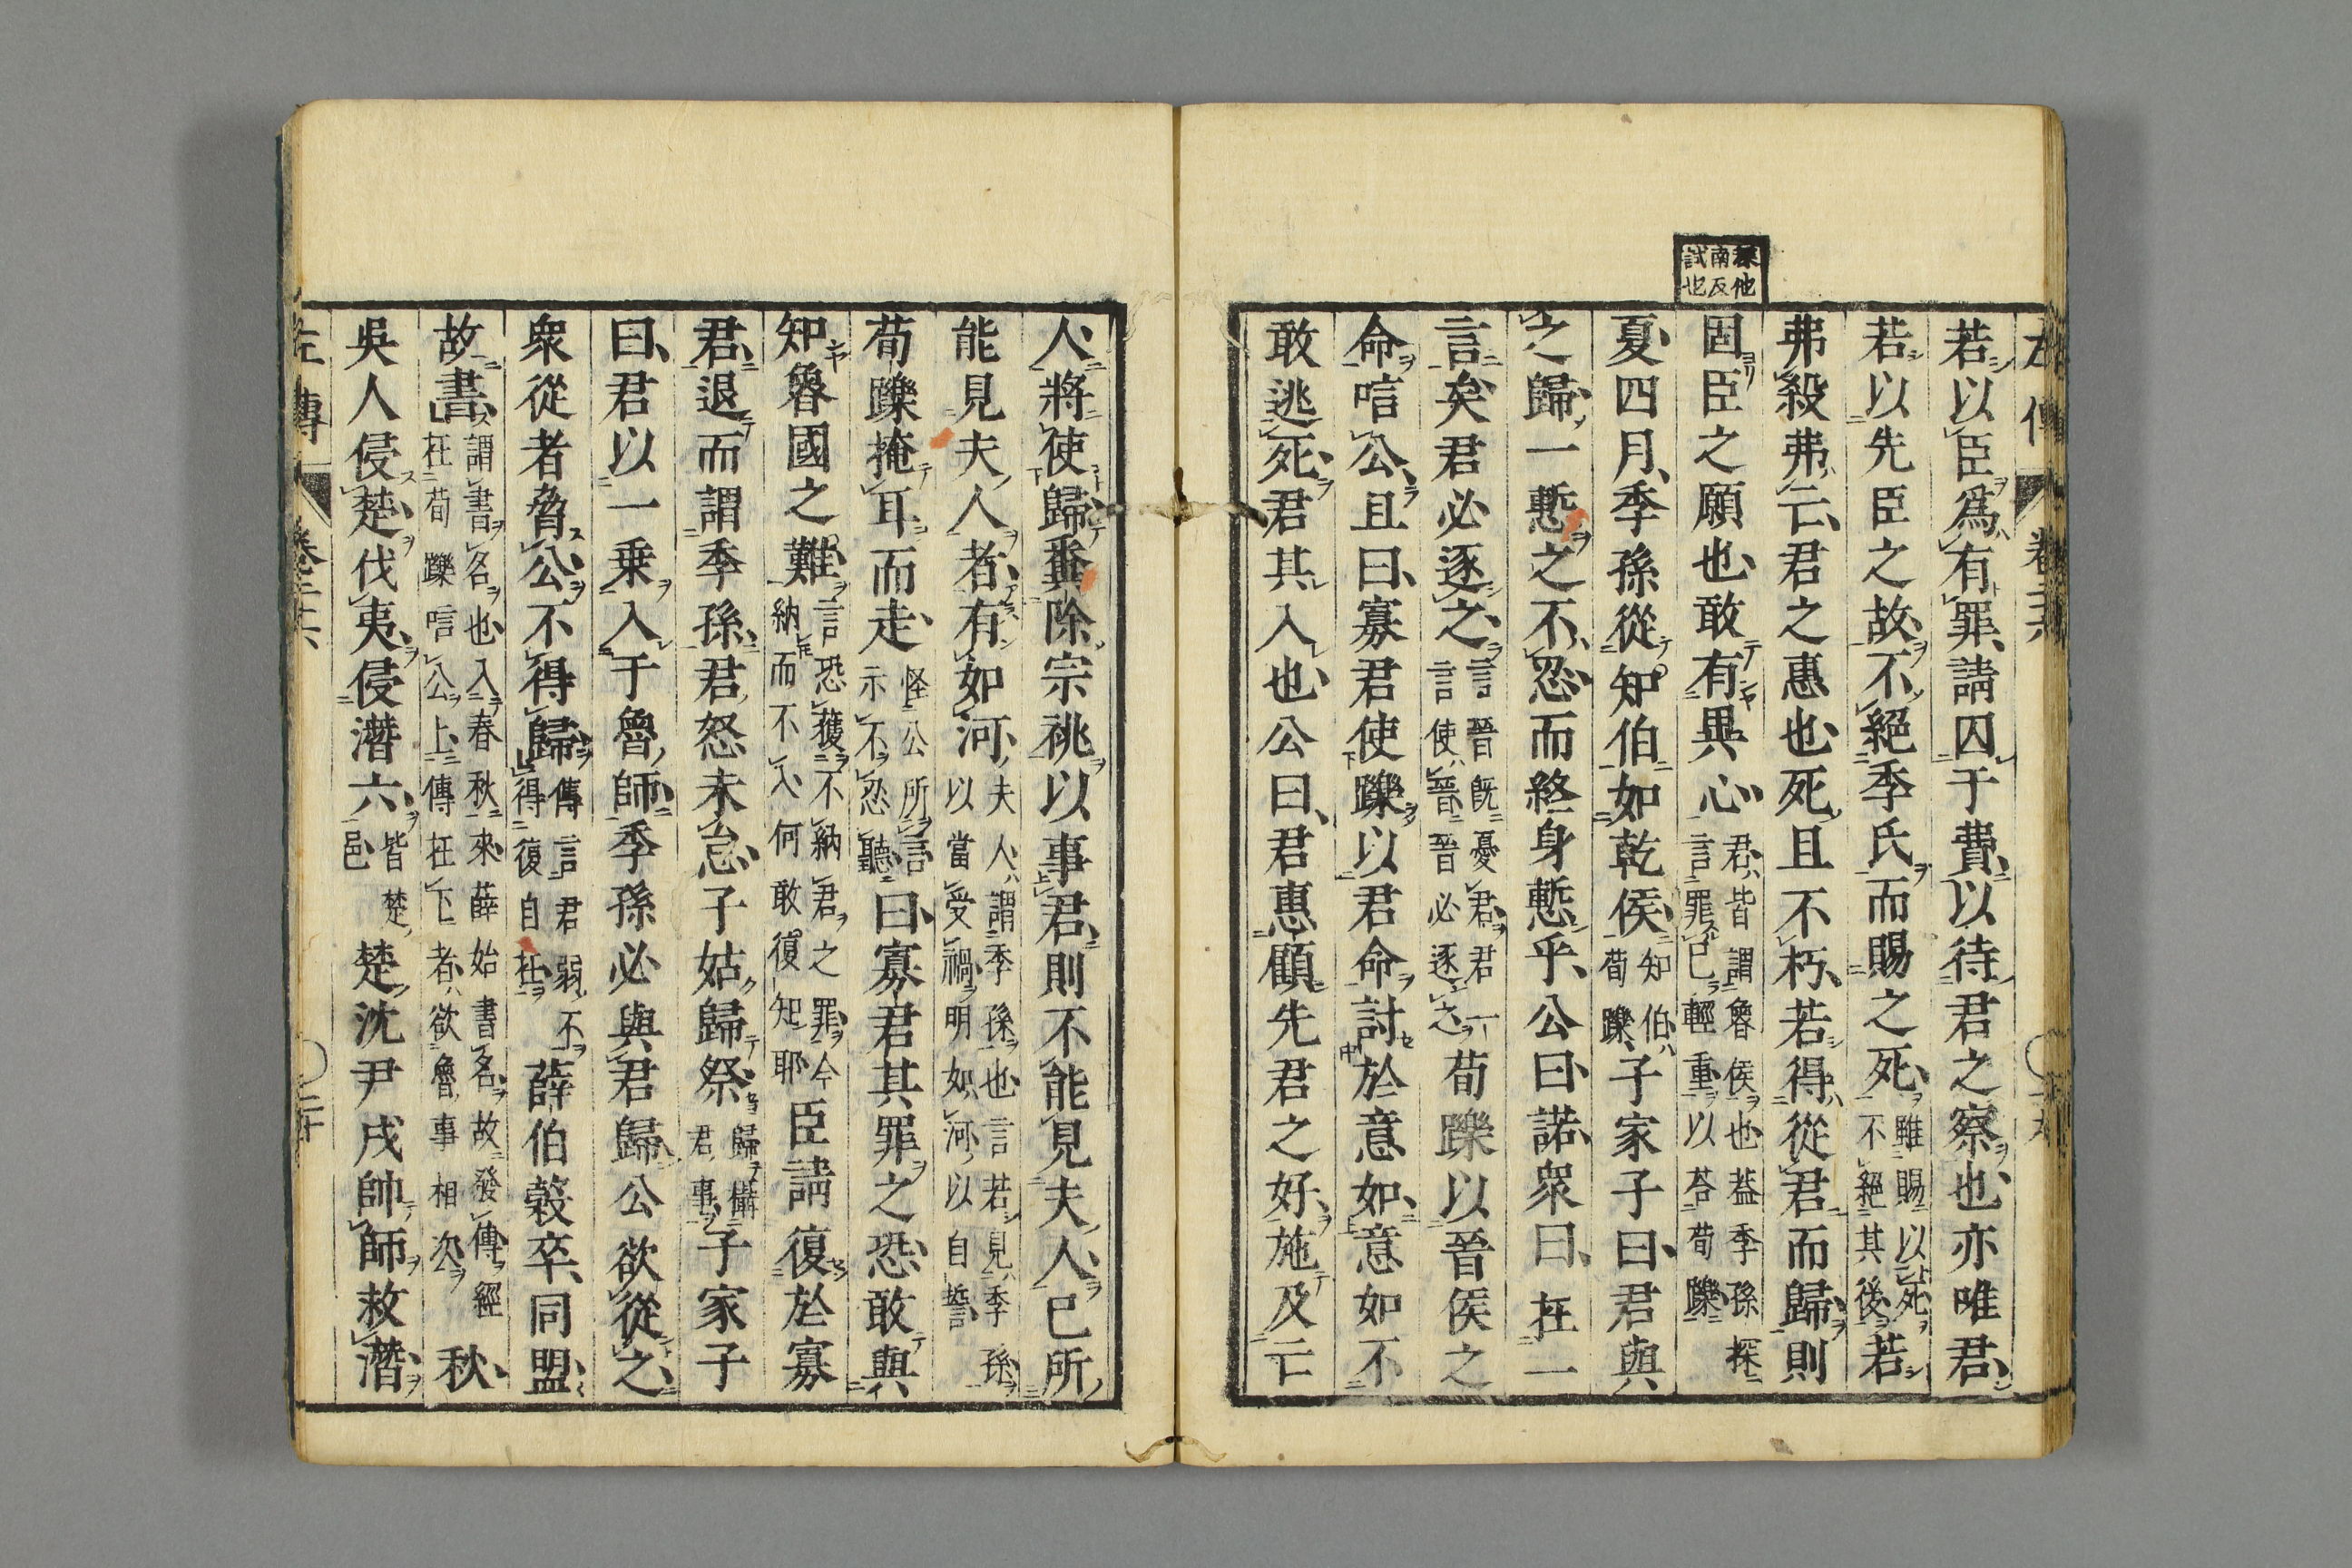 探他
南反
試也
若以臣爲有罪請囚于費以待君之察也亦唯君
若以先臣之故不絕季氏而賜之死雖賜以死不絕其後若
弗殺弗亡君之惠也死且不朽若得從君而歸則
固臣之願也敢有異心君皆謂魯侯也蓋季孫探言罪已輕重以荅荀躒
夏四月季孫從知伯如乾侯知伯荀躒子家子曰君與
之歸一慙之不忍而終身慙乎公曰諾衆曰在一
言矣君必逐之言晉旣憂君君一言使晉晉必逐之荀躒以晉侯之
命唁公且曰寡君使躒以君命討於意如意如不
敢逃死君其入也公曰君惠顧先君之好施及亡
人將使歸糞除宗祧以事君則不能見夫人已所
能見夫人者有如河夫人謂季孫也言若見季孫以當受禍明如河以自誓
荀躒掩耳而走怪公所言示不忍聽曰寡君其罪之恐敢與
知魯國之難言恐獲不納君之罪今納而不入何敢復知耶臣請復於寡
君退而謂季孫君怒未怠子姑歸祭歸攝君事子家子
曰君以一乗入于魯師季孫必與君歸公欲從之
衆從者脅公不得歸傳言君弱不得復自在薛伯榖卒同盟
故書謂書名也入春秋來薛始書名故發傳經在荀躒唁公上傳在下者欲魯事相次秋
吳人侵楚伐夷侵潛六皆楚邑楚沈尹戌帥師救潛
左傳 卷二十六